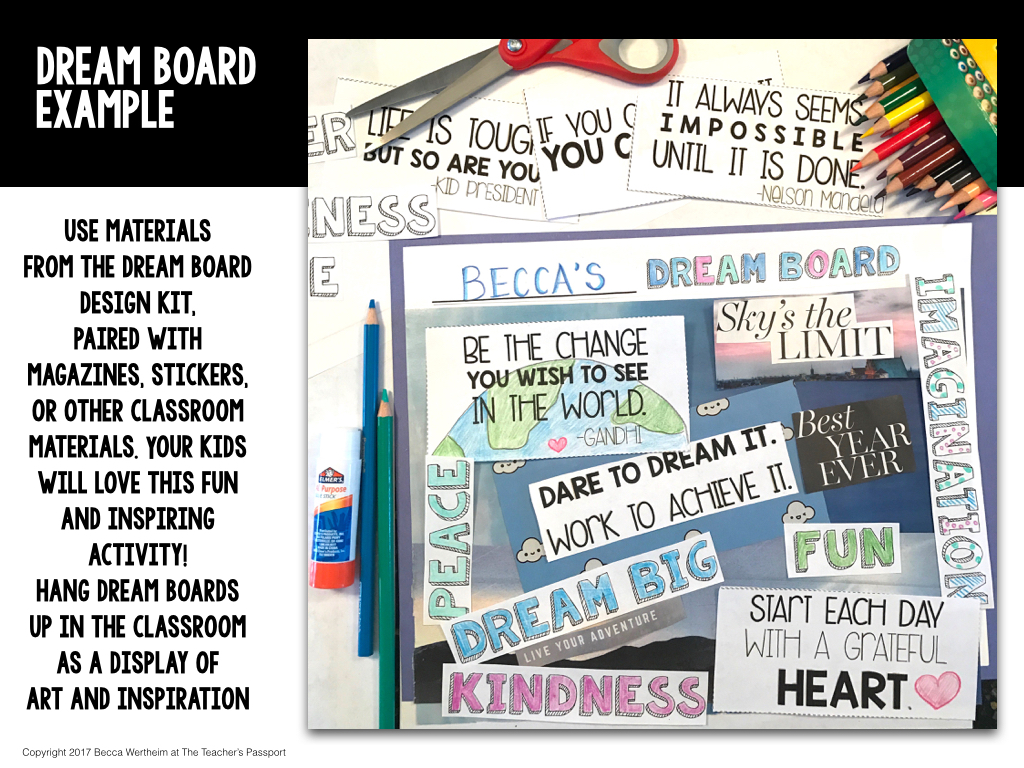 DREAM BOARD
EXAMPLE
USE MATERIALS
FROM THE DREAM BOARD
DESIGN KIT,
PAIRED WITH
MAGAZINES, STICKERS,
OR OTHER CLASSROOM
MATERIALS. YOUR KIDS
WILL LOVE THIS FUN
AND INSPIRING
ACTIVITY!
HANG DREAM BOARDS
UP IN THE CLASSROOM
AS A DISPLAY OF
ART AND INSPIRATION
Copyright 2017 Becca Wertheim at The Teacher's Passport
ER
NESS
E
LIFE IS TOUG
BUT SO ARE YOU
-KID PRESIDENT
IF YOU C
YOU C
IT
IT ALWAYS SEEMS
IMPOSSIBLE
UNTIL IT IS DONE.
-Nelson Mandela
BECCA'S DREAM BOARD
BE THE CHANGE
YOU WISH TO SEE
IN THE WORLD.
-GANDHI
Sky's the
LIMIT
IMAGINATION
Best
YEAR
EVER
DARE TO DREAM IT.
WORK TO ACHIEVE IT.
PEACE
FUN
DREAM BIG
LIVE YOUR ADVENTURE
KINDNESS
START EACH DAY
WITH A GRATEFUL
HEART.
ELMER'S
Purpose
STICK